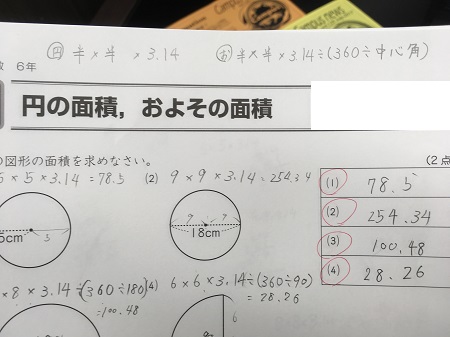 Campus new
㊋ 半×半 ×3.14 ㋔ 半×半×3.14÷(360÷中心角)
数 6年
円の面積，およその面積
の図形の面積を求めなさい。 (2点
5×5×3.14=78.5 (2) 9×9×3.14=254.34
(1) 78.5
(2) 254.34
(3) 100.48
(4) 28.26
5cm 5
9 9
18cm
×8×3.14÷(360÷180) (4) 6×6×3.14÷(360÷90)
=100.48 =28.26
6